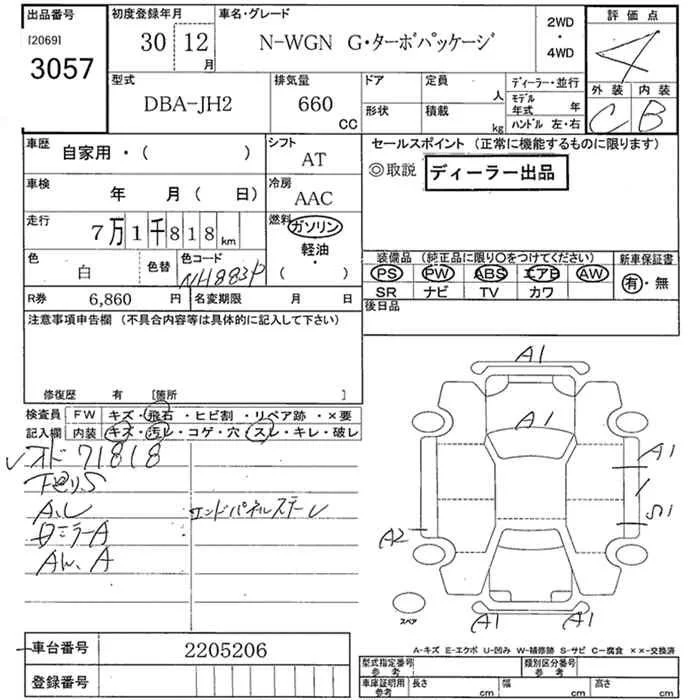 出品番号
[2069]
3057
初度登録年月
30 12
月
車名・グレード
N-WGN G・ターボパッケージ
2WD
・
4WD
評価点
4
外装 内装
C B
型式
DBA-JH2
排気量
660
CC
ドア
形状
定員
人
積載
kg
ディーラー・並行
モデル
年式 年
ハンドル 左・右
車歴
自家用・( )
シフト
AT
車検
年 月( 日)
冷房
AAC
走行
7万1千818km
燃料
ガソリン
軽油・
( )
色
白
色替
色コード
NH883P
R券
6,860 円
名変期限 月 日
セールスポイント (正常に機能するものに限ります)
◎取説 ディーラー出品
装備品 (純正品に限り○をつけてください)
PS PW ABS エアB AW
SR ナビ TV カワ
新車保証書
有・無
後日品
注意事項申告欄 (不具合内容等は具体的に記入して下さい)
修復歴 有 [箇所 ]
検査員
記入欄
FW キズ・飛石・ヒビ割・リペア跡・×要
内装 キズ・汚レ・コゲ・穴・スレ・キレ・破レ
オド 71818
下廻り、S
A、U
エンドパネルステーレ
ロミラーA
AW、A
A1
A1
A1
S1
A2
A1
A1
スペア
車台番号
2205206
登録番号
A-キズ E-エクボ U-凹み W-補修跡 S-サビ C-腐食 ××-交換済
型式指定番号
参考
類別区分番号
参考
車庫証明用
参考
長さ cm
幅 cm
高さ cm